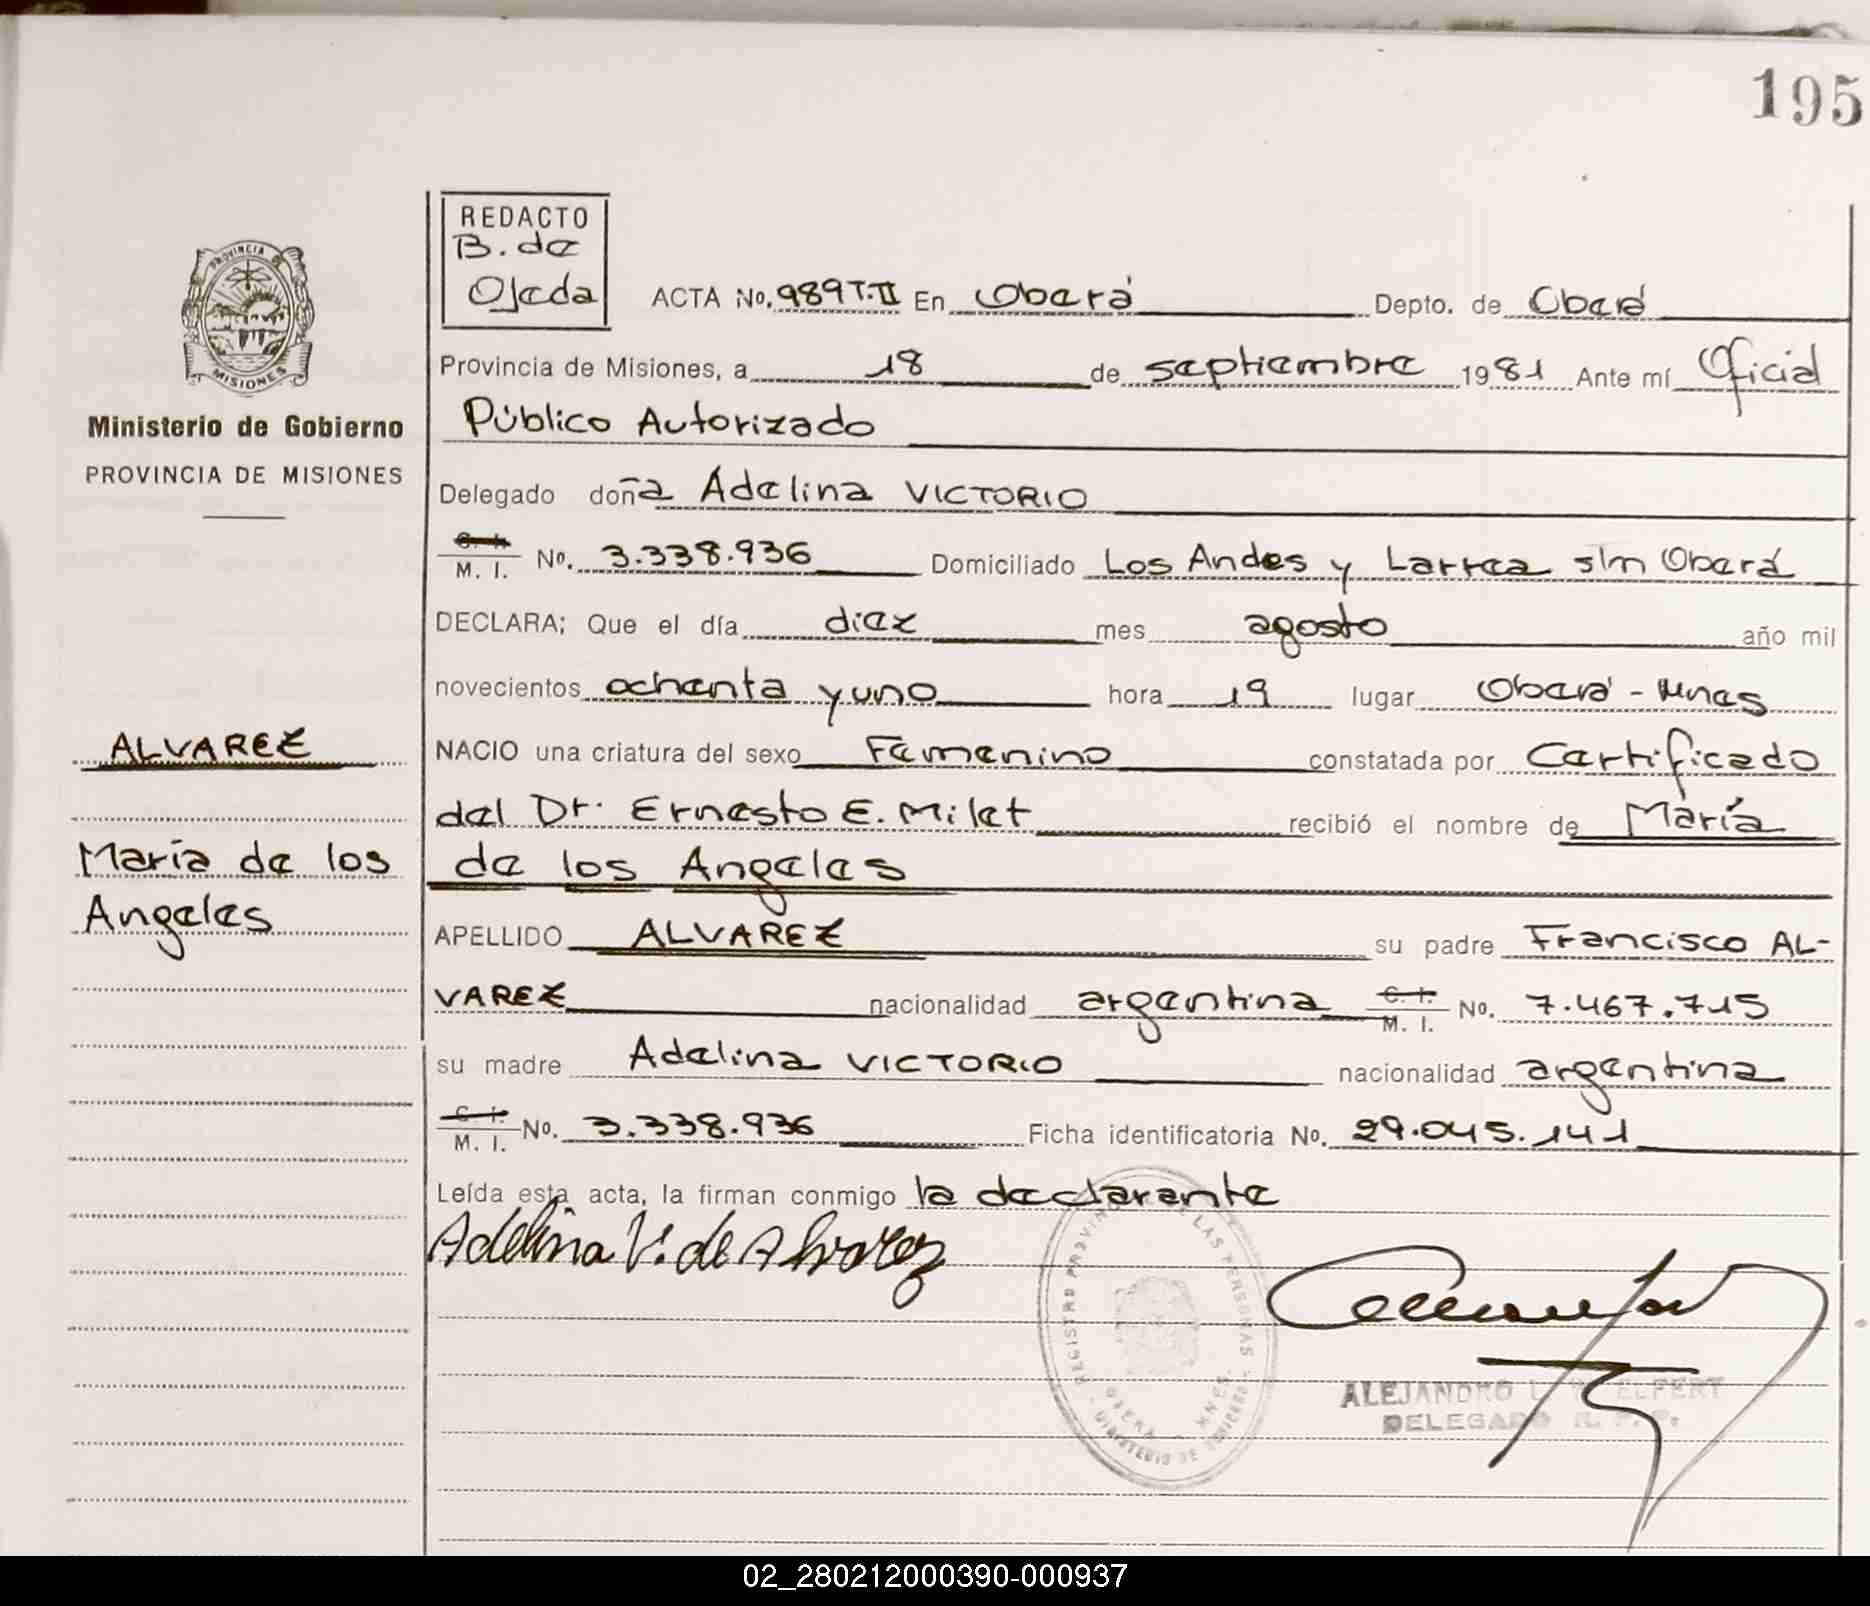 195
REDACTO
B. de
Ojeda
PROVINCIA DE
MISIONES
Ministerio de Gobierno
PROVINCIA DE MISIONES
ALVAREZ
María de los
Angeles
ACTA No. 989 T.II En Oberá Depto. de Oberá
Provincia de Misiones, a 18 de septiembre 1981 Ante mí Oficial
Público Autorizado
Delegado doña Adelina VICTORIO
C. I. M. I. No. 3.338.936 Domiciliado Los Andes y Larrea s/n Oberá
DECLARA; Que el día diez mes agosto año mil
novecientos ochenta y uno hora 19 lugar Oberá - Mnes
NACIO una criatura del sexo Femenino constatada por Certificado
del Dr. Ernesto E. Milet recibió el nombre de María
de los Angeles
APELLIDO ALVAREZ su padre Francisco AL-
VAREZ nacionalidad argentina C. I. M. I. No. 7.467.715
su madre Adelina VICTORIO nacionalidad argentina
C. I. M. I. No. 3.338.936 Ficha identificatoria No. 29.045.141
Leída esta acta, la firman conmigo la declarante
Adelina V. de Alvarez
REGISTRO PROVINCIAL DE LAS PERSONAS
OBERA - MNES.
MINISTERIO DE GOBIERNO
ALEJANDRO L.
DELEGADO R. P. P.
02_280212000390-000937